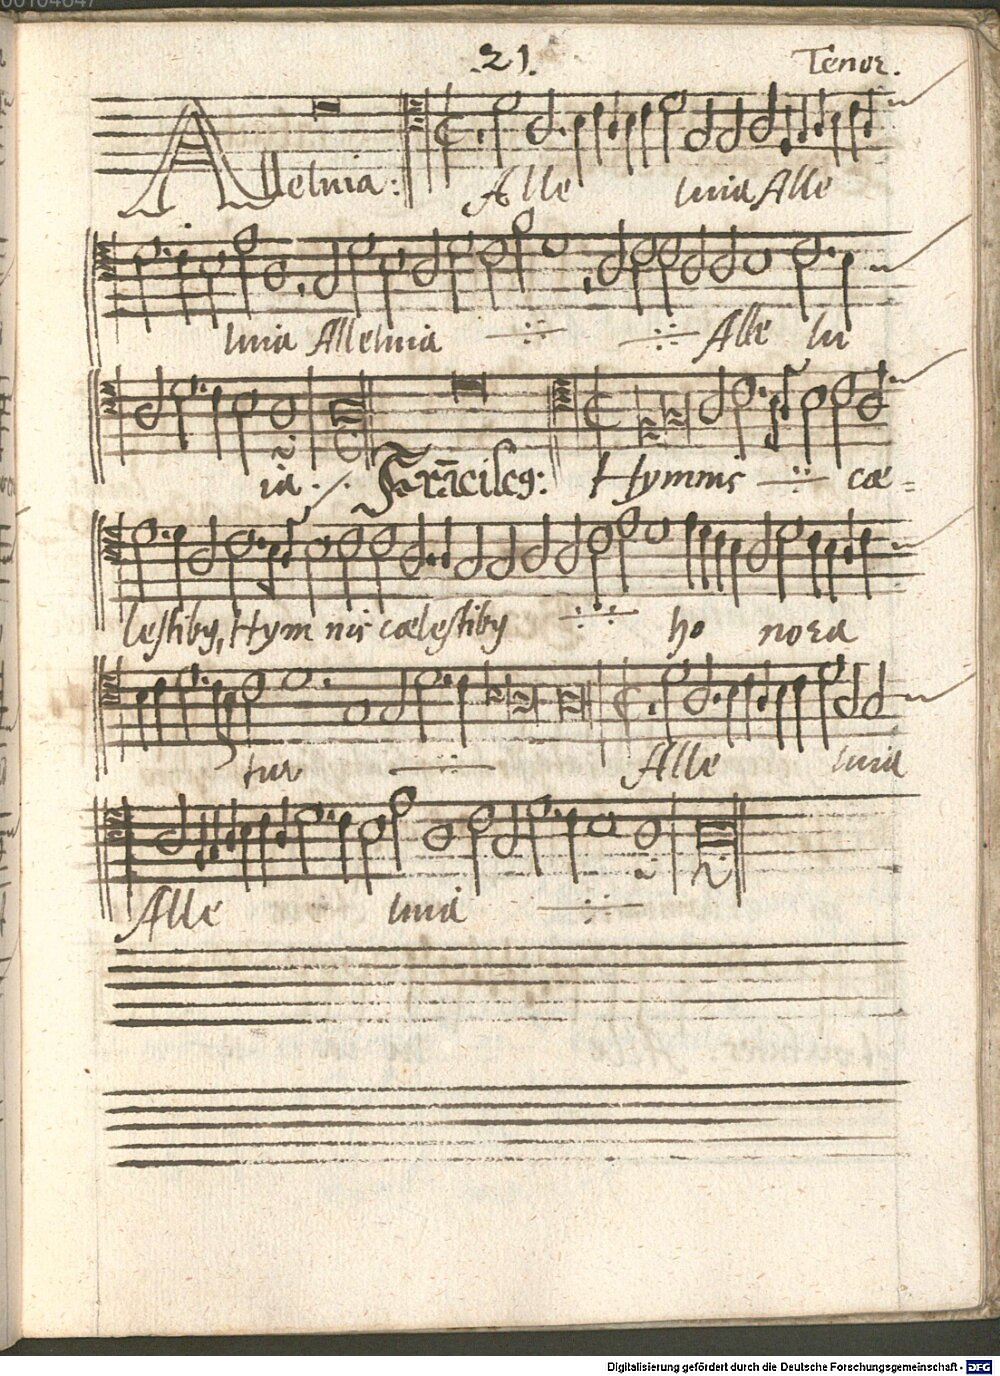 .21. Tenor.
Alleluia: Alle luia Alle
luia Alleluia Alle lu
ia. Hymnis cœ=
lestiby, Hym nis cœlestiby ho nora
tur Alle luia
Alle luia
Digitalisierung gefördert durch die Deutsche Forschungsgemeinschaft - DFG